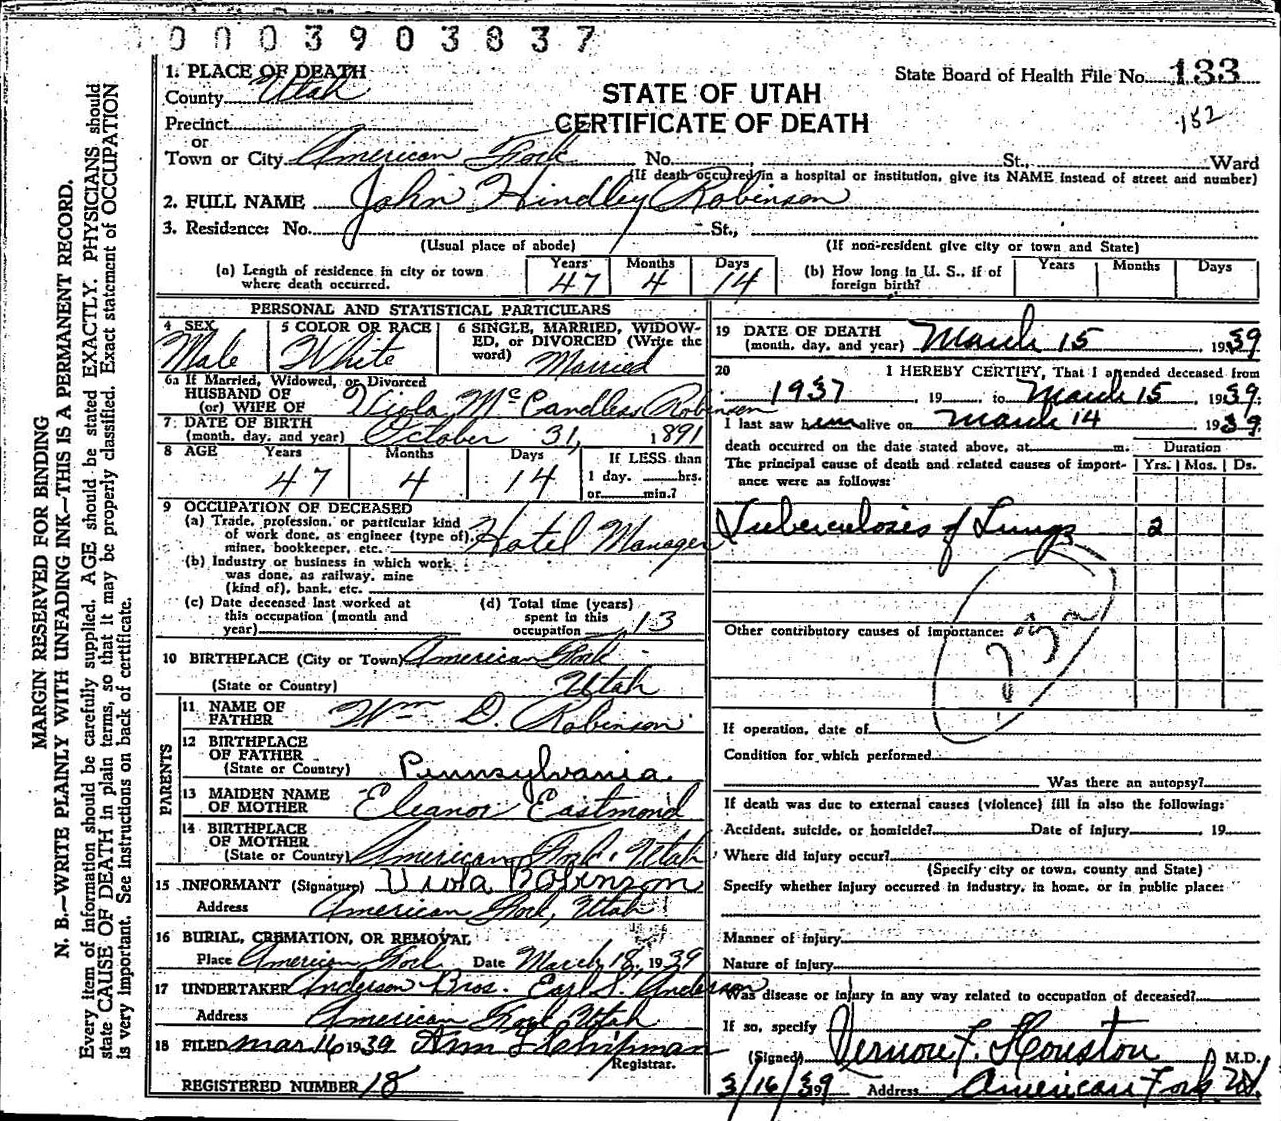 0003903837
1. PLACE OF DEATH
County Utah
State Board of Health File No. 133
STATE OF UTAH
CERTIFICATE OF DEATH
152
Precinct
or
Town or City American Fork No. St., Ward
(If death occurred in a hospital or institution, give its NAME instead of street and number)
2. FULL NAME John Hindley Robinson
3. Residence: No. St.,
(Usual place of abode) (If non-resident give city or town and State)
(a) Length of residence in city or town where death occurred. Years 47 Months 4 Days 14
(b) How long in U. S., if of foreign birth? Years Months Days
PERSONAL AND STATISTICAL PARTICULARS
4 SEX Male
5 COLOR OR RACE White
6 SINGLE, MARRIED, WIDOWED, or DIVORCED (Write the word) Married
6a If Married, Widowed, or Divorced
HUSBAND OF
(or) WIFE OF Viola McCandless Robinson
7 DATE OF BIRTH
(month, day, and year) October 31, 1891
8 AGE Years 47 Months 4 Days 14
If LESS than 1 day. hrs. or min.?
9 OCCUPATION OF DECEASED
(a) Trade, profession, or particular kind
of work done, as engineer (type of),
miner, bookkeeper, etc. Hotel Manager
(b) Industry or business in which work
was done, as railway, mine
(kind of), bank, etc.
(c) Date deceased last worked at
this occupation (month and
year)
(d) Total time (years)
spent in this
occupation 13
10 BIRTHPLACE (City or Town) American Fork
(State or Country) Utah
PARENTS
11 NAME OF
FATHER Wm D. Robinson
12 BIRTHPLACE
OF FATHER
(State or Country) Pennsylvania
13 MAIDEN NAME
OF MOTHER Eleanor Eastmond
14 BIRTHPLACE
OF MOTHER
(State or Country) American Fork, Utah
15 INFORMANT (Signature) Viola Robinson
Address American Fork, Utah
16 BURIAL, CREMATION, OR REMOVAL
Place American Fork Date March 18, 1939
17 UNDERTAKER Anderson Bros. Earl S. Anderson
Address American Fork Utah
18 FILED Mar 16 1939 Ann F Shipman
Registrar.
REGISTERED NUMBER 18
19 DATE OF DEATH
(month, day, and year) March 15, 1939
20 I HEREBY CERTIFY, That I attended deceased from
1937, 19 to March 15, 1939;
I last saw him alive on March 14 1939
death occurred on the date stated above, at m. Duration
The principal cause of death and related causes of importance were as follows: Yrs. Mos. Ds.
Tuberculosis of Lungs 2
Other contributory causes of importance:
If operation, date of
Condition for which performed
Was there an autopsy?
If death was due to external causes (violence) fill in also the following:
Accident, suicide, or homicide? Date of injury 19
Where did injury occur?
(Specify city or town, county and State)
Specify whether injury occurred in industry, in home, or in public place:
Manner of injury
Nature of injury
Was disease or injury in any way related to occupation of deceased?
If so, specify
(Signed) Vernon F. Houston M.D.
3/16/39 Address American Fork Ut.
MARGIN RESERVED FOR BINDING
N. B.—WRITE PLAINLY WITH UNFADING INK—THIS IS A PERMANENT RECORD.
Every item of information should be carefully supplied. AGE should be stated EXACTLY. PHYSICIANS should
state CAUSE OF DEATH in plain terms, so that it may be properly classified. Exact statement of OCCUPATION
is very important. See instructions on back of certificate.